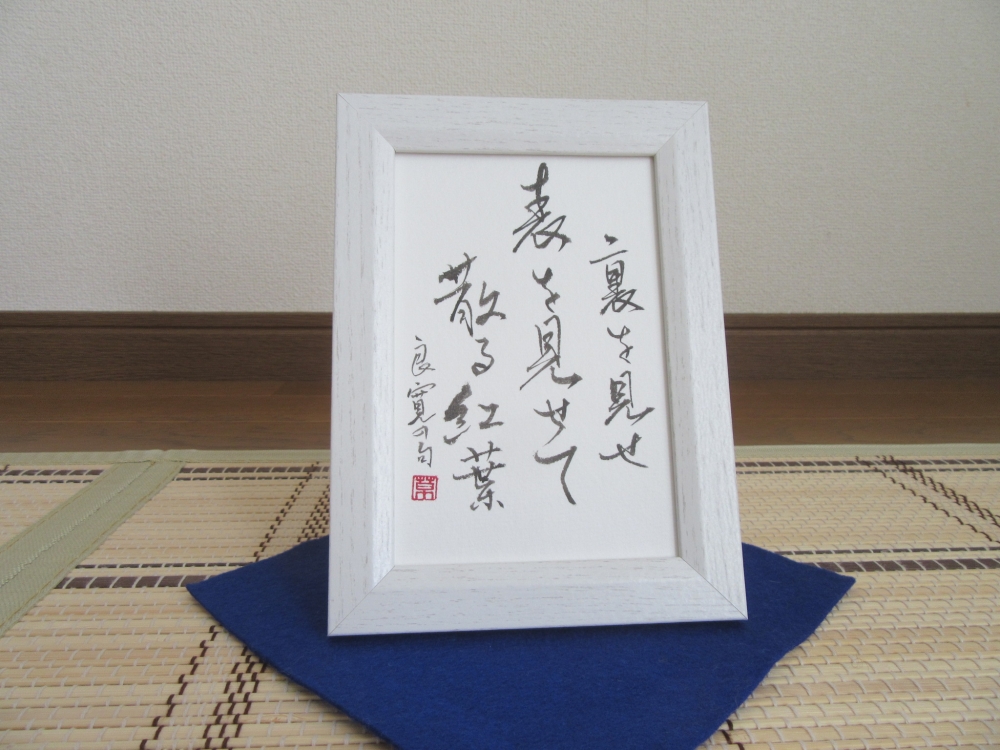 裏を見せ
表を見せて
散る紅葉
良寛の句